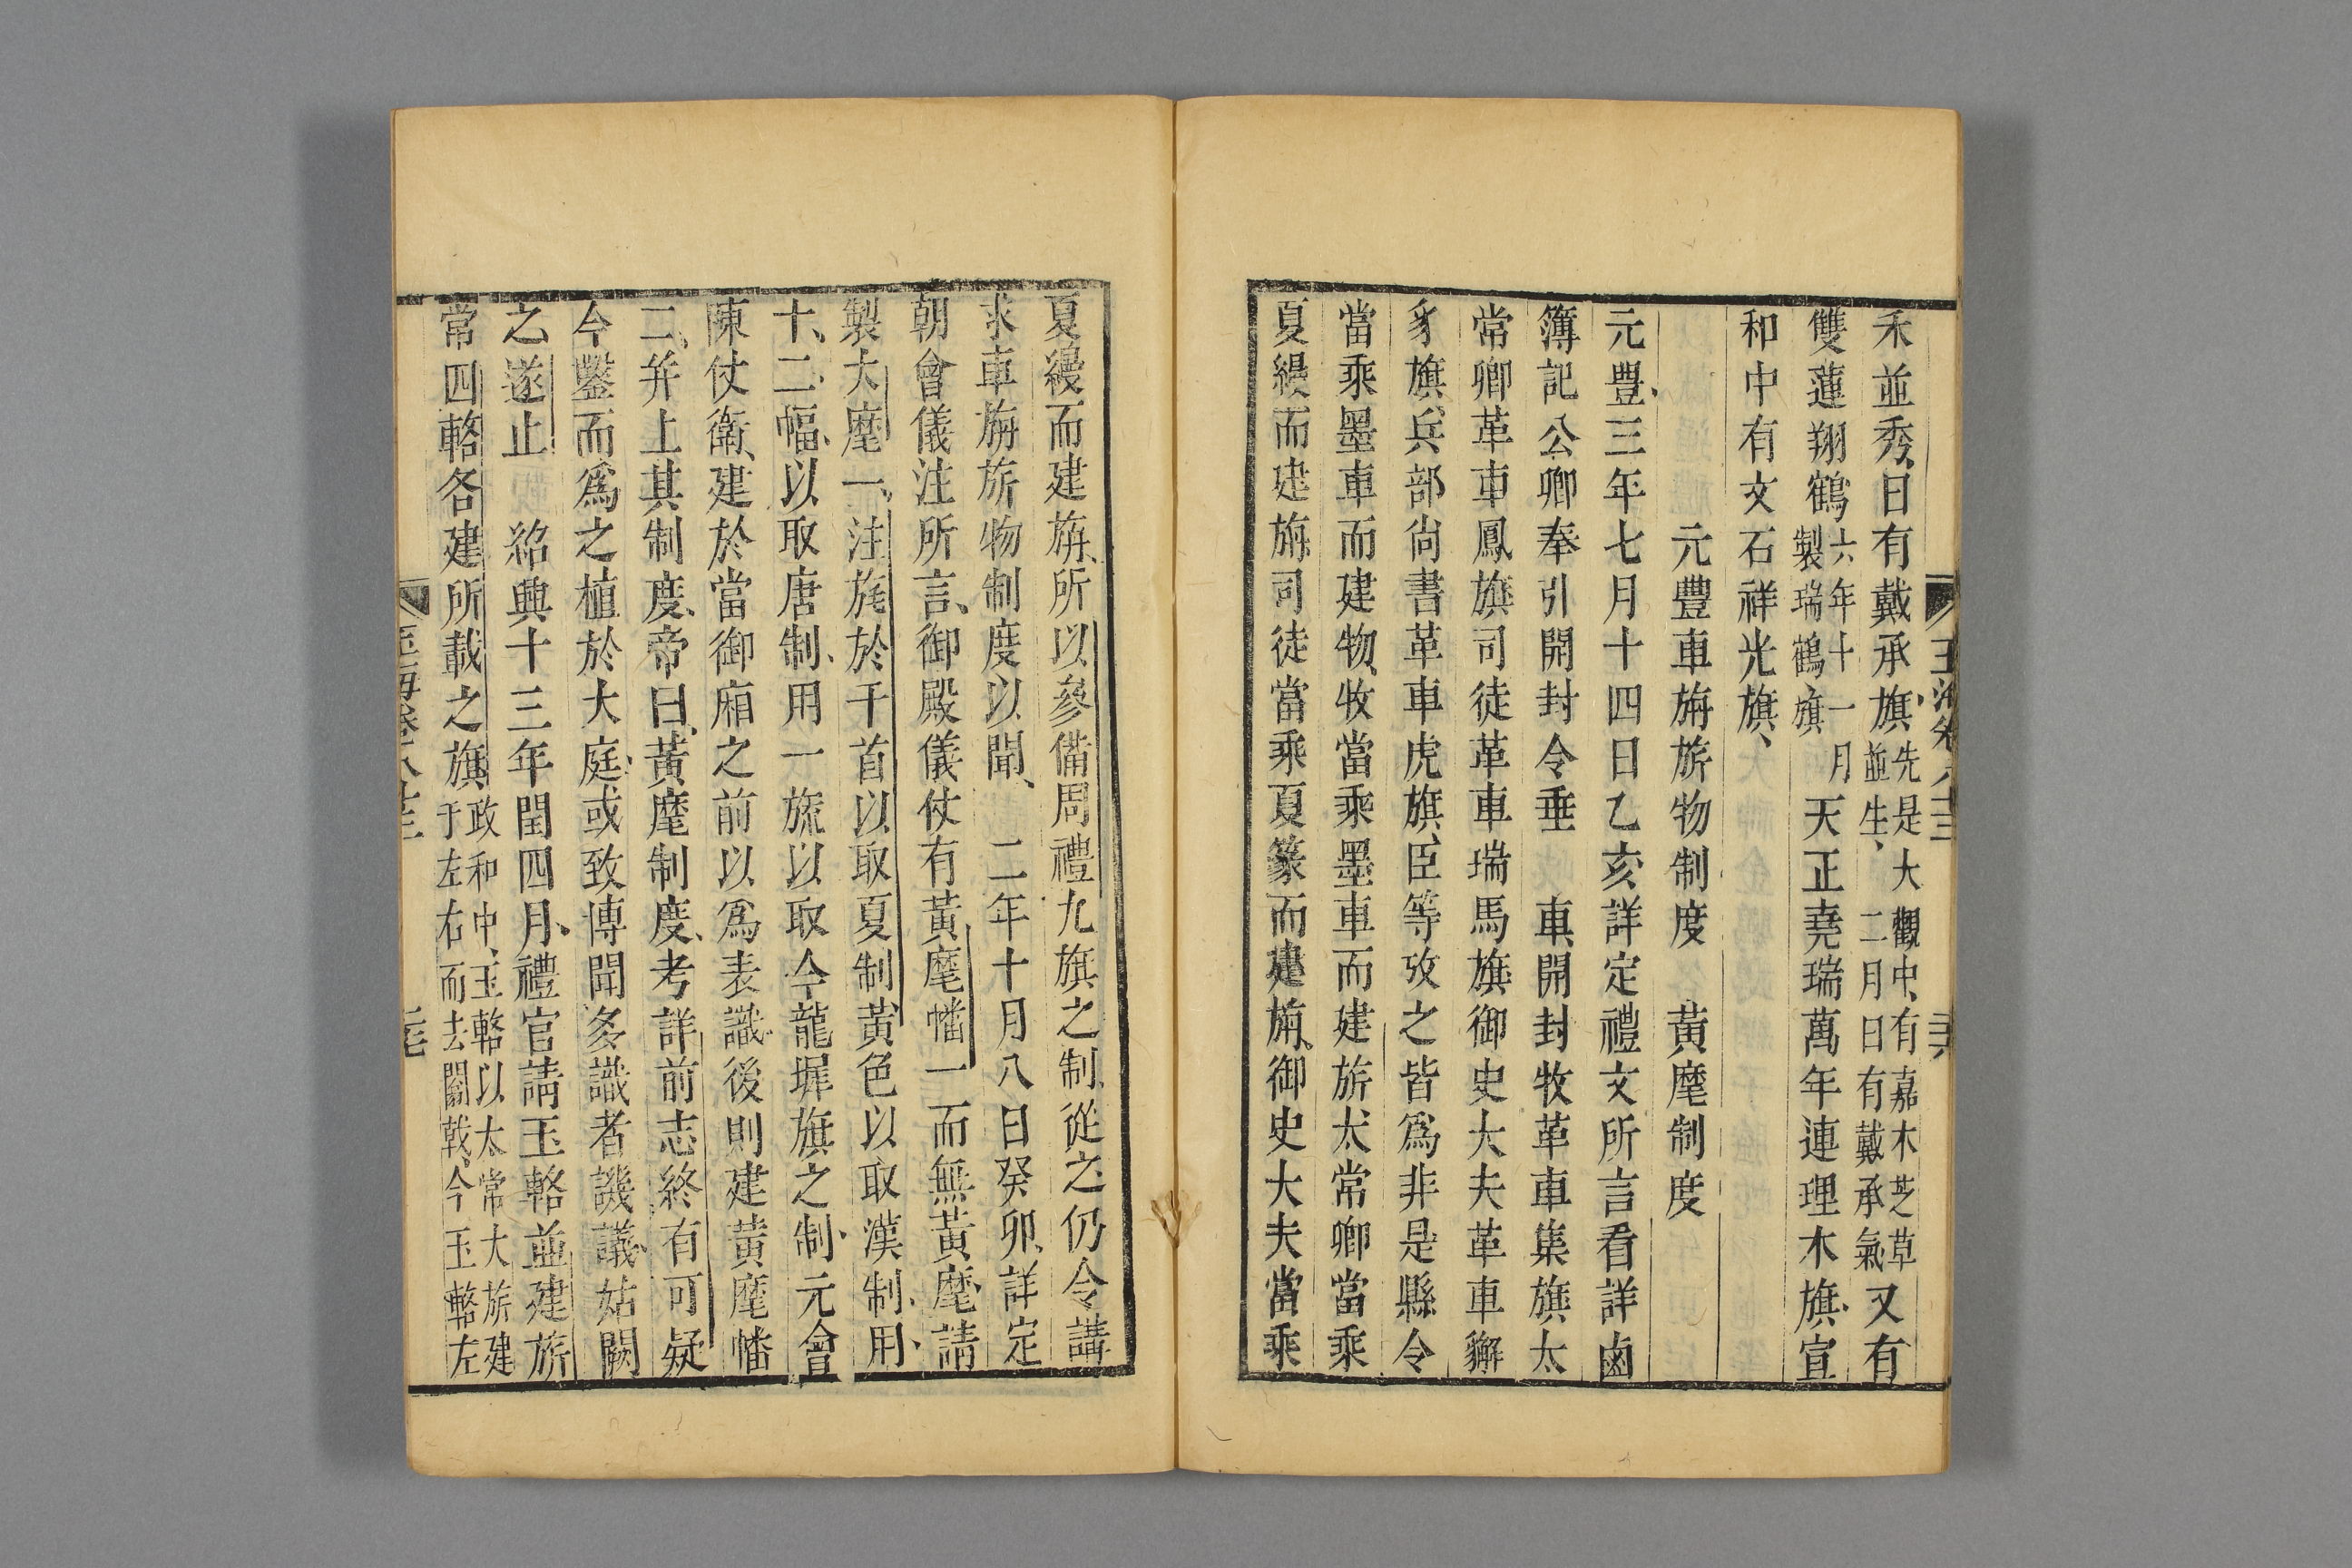 禾並秀日有戴承旗先是大觀中有嘉木芝草又有
並生二月日有戴承氣
雙蓮翔鶴六年十一月天正堯瑞萬年連理木旗宣
製瑞鶴旗
和中有文石祥光旗
元豐車旃旂物制度 黃麾制度
元豐三年七月十四日乙亥詳定禮文所言看詳鹵
簿記公卿奉引開封令乘 車開封牧革車隼旗太
常卿革車鳳旗司徒革車瑞馬旗御史大夫革車獬
豸旗兵部尚書革車虎旗臣等攷之皆為非是縣令
當乘墨車而建物牧當乘墨車而建旂太常卿當乘
夏縵而建旃司徒當乘夏篆而建旃御史大夫當乘
夏縵而建旃所以參備周禮九旗之制從之仍令講
求車旃旂物制度以聞 二年十月八日癸卯詳定
朝會儀注所言御殿儀仗有黃麾幡一而無黃麾請
製大麾一注旄於干首以取夏制黃色以取漢制用
十二幅以取唐制用一旒以取今龍墀旗之制元會
陳仗衛建於當御廂之前以為表識後則建黃麾幡
二并上其制度帝曰黃麾制度考詳前志終有可疑
今鑿而為之植於大庭或致博聞多識者譏議姑闕
之遂止 紹興十三年閏四月禮官請玉輅並建旂
常四輅各建所載之旗政和中玉輅以太常大旂建
于左右而去闟戟今玉輅左